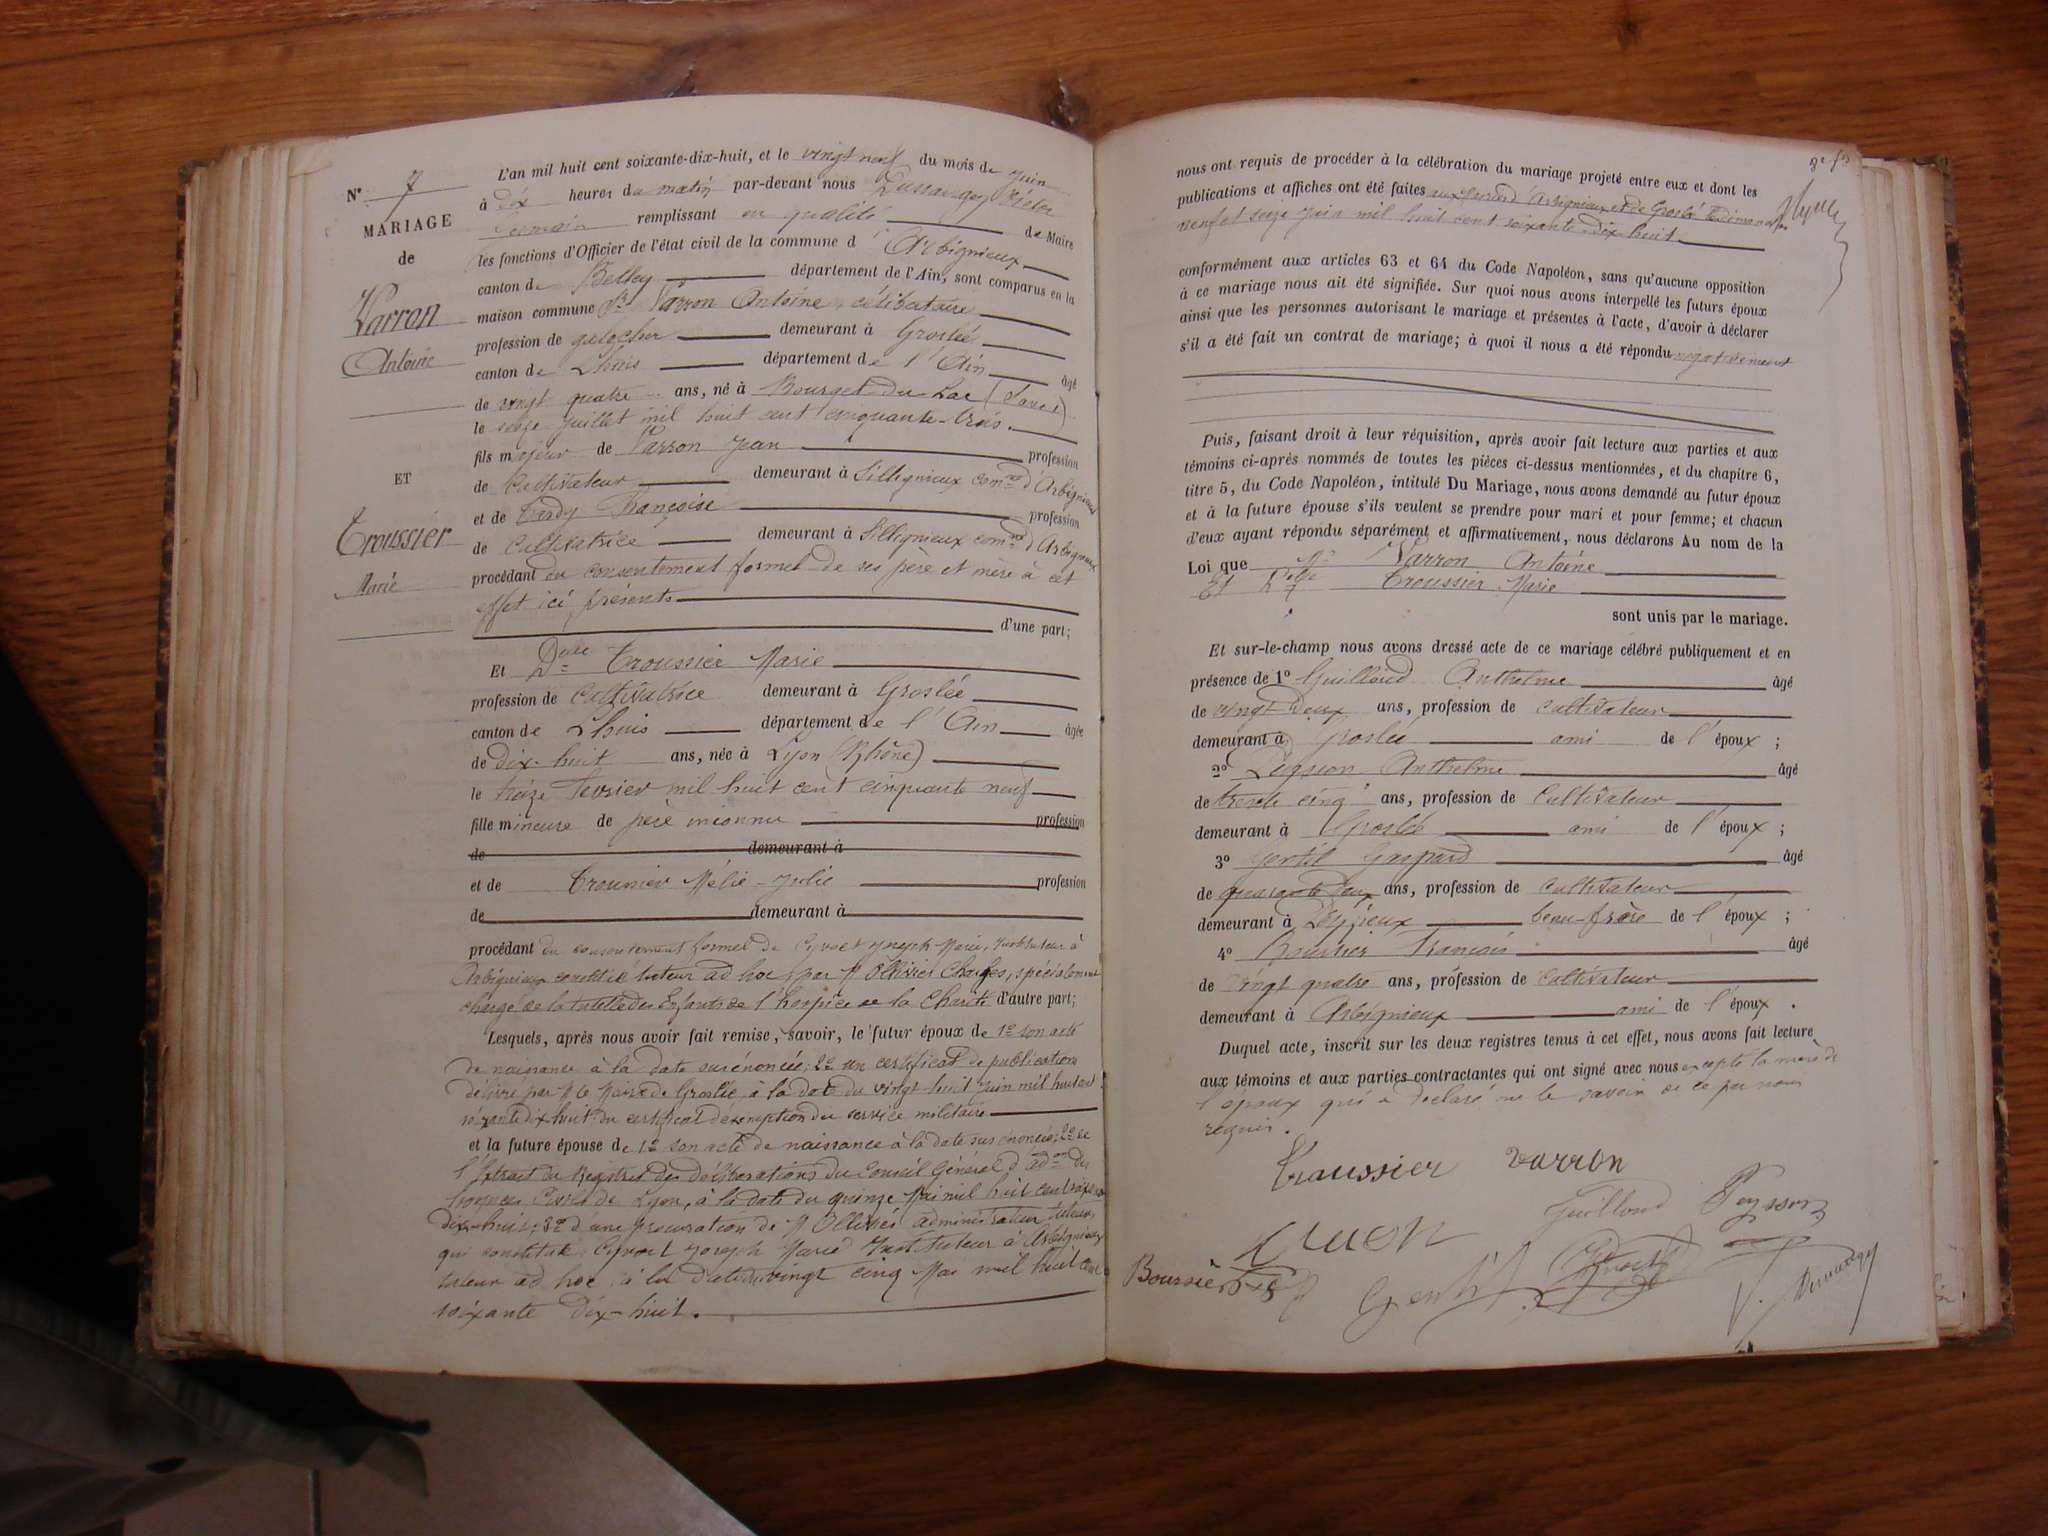 N° 7
MARIAGE
de
Varron
Antoine
ET
Troussier
Marie
L'an mil huit cent soixante-dix-huit, et le vingt neuf du mois de juin
à dix heures du matin par-devant nous Dussauges Victor
Germain remplissant en qualité de Maire
les fonctions d'Officier de l'état civil de la commune d'Arbignieux
canton de Belley département de l'Ain, sont comparus en la
maison commune Sr Varron Antoine célibataire
profession de demeurant à Groslée
canton de Lhuis département de l'Ain âgé
de vingt quatre ans, né à Bourget-du-Lac (Savoie)
le seize juillet mil huit cent cinquante-trois.
fils majeur de Varron Jean profession
de Cultivateur demeurant à Sillignieux comne d'Arbignieux
et de Françoise profession
de Cultivatrice demeurant à Sillignieux comne d'Arbignieux
procédant du consentement formel de ses père et mère à cet
effet ici présents
d'une part;
Et Dlle Troussier Marie
profession de Cultivatrice demeurant à Groslée
canton de Lhuis département de l'Ain âgée
de dix-huit ans, née à Lyon (Rhône)
le treize février mil huit cent cinquante neuf
fille mineure de père inconnu profession
de demeurant à
et de Troussier Mélie-Julie profession
de demeurant à
procédant du consentement formel de Cyvoct Joseph Marie, Instituteur à
Arbignieux constitué tuteur ad hoc par Mr Ollivier Charles, spécialement
chargé de la tutelle des Enfants de l'hospice de la Charité d'autre part;
Lesquels, après nous avoir fait remise, savoir, le futur époux de 1° son acte
de naissance à la date susénoncée; 2° un certificat de publication
délivré par Mr le Maire de Groslée à la date du vingt huit juin mil huit cent
soixante dix huit du certificat d'exemption du service militaire
et la future épouse de 1° son acte de naissance à la date sus énoncée; 2° de
l'Extrait du Registre des délibérations du Conseil Général d'adon des
hospices Civils de Lyon, à la date du quinze Mai mil huit cent soixante
dix-huit; 3° d'une procuration de Mr Ollivier administrateur tuteur,
qui constitue Cyvoct Joseph Marie Instituteur à Arbignieux
tuteur ad hoc à la date du vingt cinq Mai mil huit cent
soixante dix-huit.
nous ont requis de procéder à la célébration du mariage projeté entre eux et dont les
publications et affiches ont été faites d'Arbignieux et de Groslée
neuf et seize juin mil huit cent soixante-dix-huit
conformément aux articles 63 et 64 du Code Napoléon, sans qu'aucune opposition
à ce mariage nous ait été signifiée. Sur quoi nous avons interpellé les futurs époux
ainsi que les personnes autorisant le mariage et présentes à l'acte, d'avoir à déclarer
s'il a été fait un contrat de mariage; à quoi il nous a été répondu négativement
Puis, faisant droit à leur réquisition, après avoir fait lecture aux parties et aux
témoins ci-après nommés de toutes les pièces ci-dessus mentionnées, et du chapitre 6,
titre 5, du Code Napoléon, intitulé Du Mariage, nous avons demandé au futur époux
et à la future épouse s'ils veulent se prendre pour mari et pour femme; et chacun
d'eux ayant répondu séparément et affirmativement, nous déclarons Au nom de la
Loi que Mr Varron Antoine
Et Delle Troussier Marie
sont unis par le mariage.
Et sur-le-champ nous avons dressé acte de ce mariage célébré publiquement et en
présence de 1° Guilloud Anthelme âgé
de vingt deux ans, profession de cultivateur
demeurant à Groslée ami de l'époux;
2° Peysson Anthelme âgé
de trente cinq ans, profession de Cultivateur
demeurant à Groslée ami de l'époux;
3° Gentil Gaspard âgé
de quarante deux ans, profession de Cultivateur
demeurant à Peyzieux beau-frère de l'époux;
4° Boursier François âgé
de vingt quatre ans, profession de cultivateur
demeurant à Arbignieux ami de l'époux.
Duquel acte, inscrit sur les deux registres tenus à cet effet, nous avons fait lecture
aux témoins et aux parties contractantes qui ont signé avec nous excepté la mère de
l'époux qui a déclaré ne le savoir de ce par nous
requis.
Troussier Varron
Guilloud Peysson
Boursier Gentil Cyvoct V. Dussauges